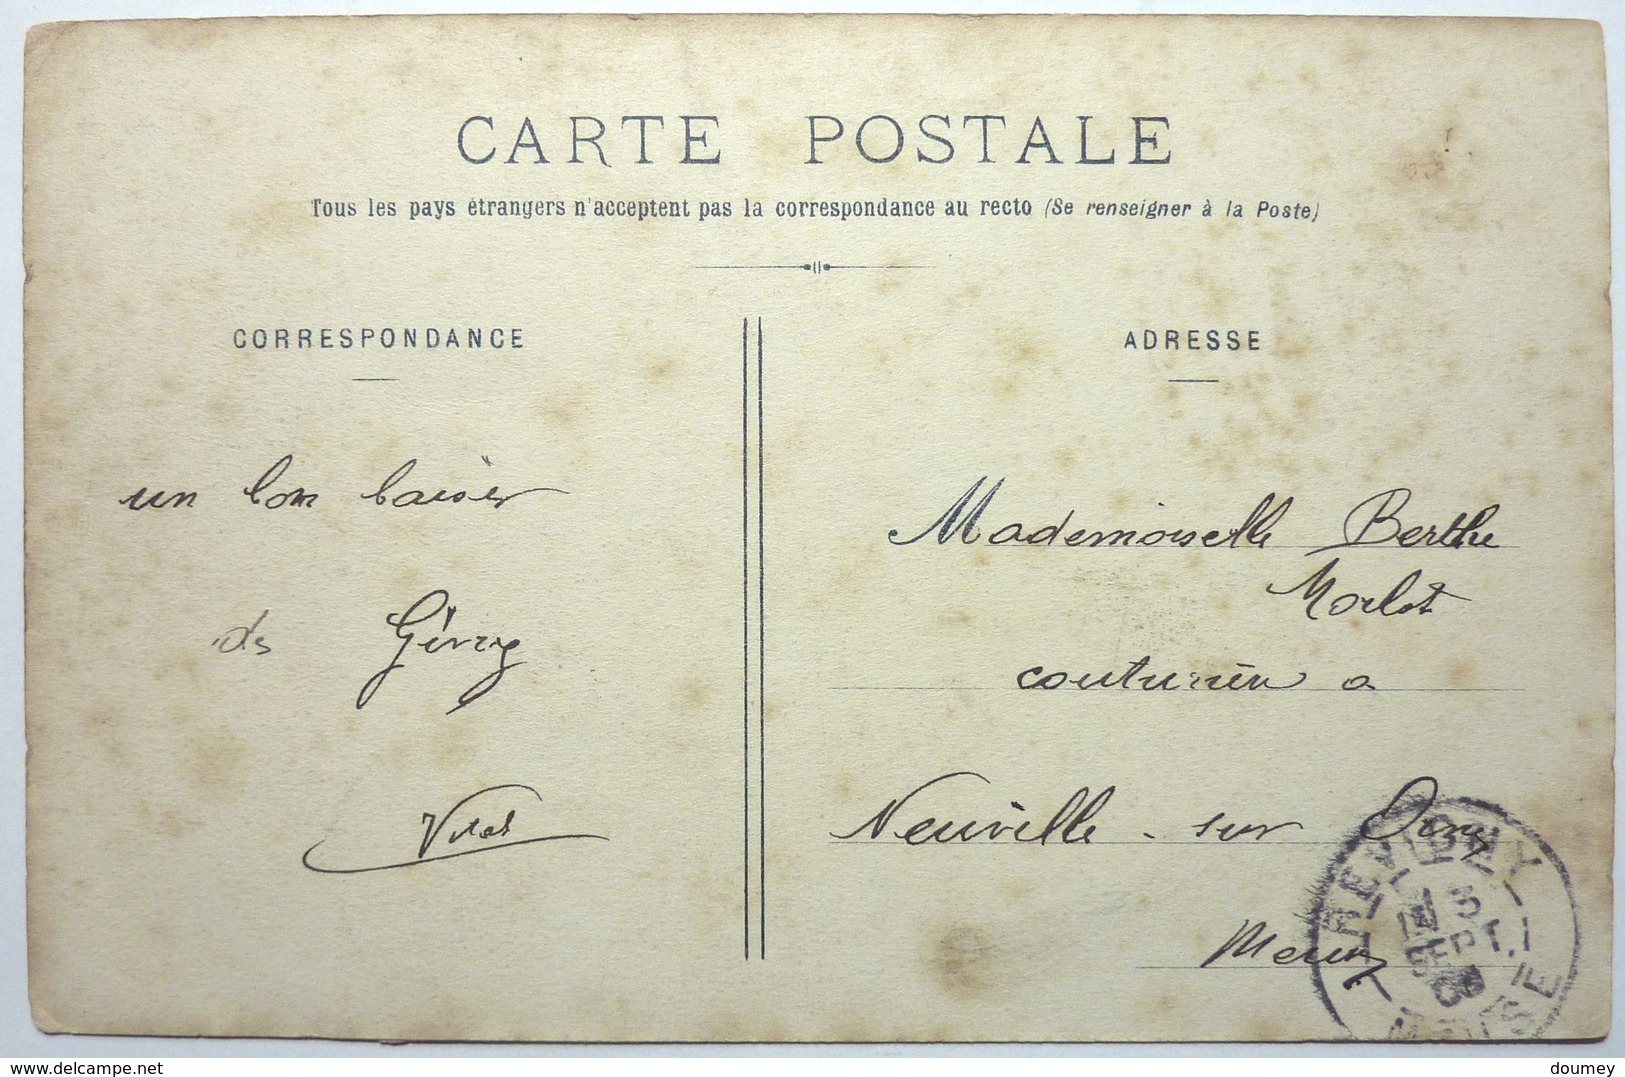 CARTE POSTALE
Tous les pays étrangers n'acceptent pas la correspondance au recto (Se renseigner à la Poste)
CORRESPONDANCE
un bon baiser
de Givry
ADRESSE
Mademoiselle Berthe
Morlot
couturière a
Neuville-sur Orny
Meuse
REVIGNY
SEPT.
MEUSE
www.delcampe.net
doumey